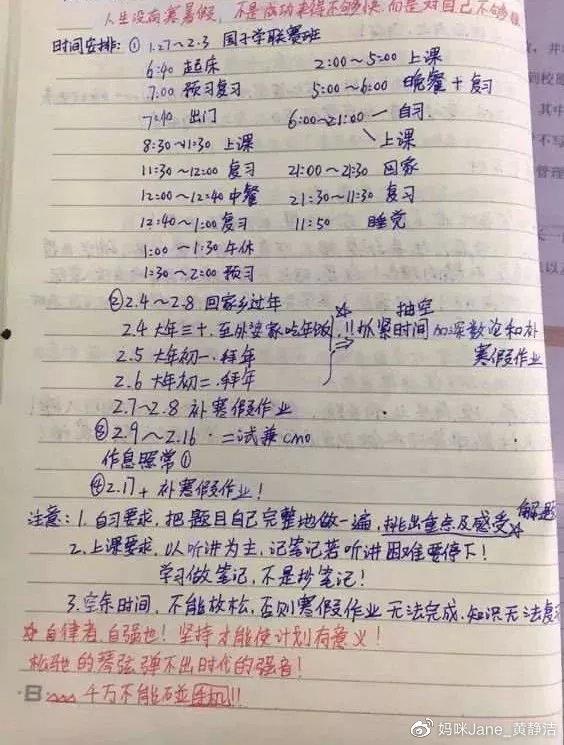 人生没有寒暑假，不是成功来得不够快，而是对自己不够狠
时间安排: ① 1.27~2.3 国子学联赛班
6:40 起床
7:00 预习复习
7:40 出门
8:30~11:30 上课
11:30~12:00 复习
12:00~12:40 中餐
12:40~1:00 复习
1:00~1:30 午休
1:30~2:00 预习
2:00~5:00 上课
5:00~6:00 晚餐+复习
6:00~21:00 一 自习
\ 上课
21:00~21:30 回家
21:30~11:30 复习
11:50 睡觉
② 2.4~2.8 回家乡过年
2.4 大年三十. 至外婆家吃年饭
2.5 大年初一. 拜年
2.6 大年初二. 拜年
☆ 抽空
!! 抓紧时间加深数论和补
⇒ 寒假作业
2.7~2.8 补寒假作业
③ 2.9~2.16. 二试兼cmo
作息照常①
④ 2.17+ 补寒假作业!
注意: 1. 自习要求, 把题目自己完整地做一遍, 挑出重点及感受☆解题
2. 上课要求, 以听讲为主, 记笔记若听讲困难要停下!
学习做笔记, 不是抄笔记!
3. 空余时间, 不能放松, 否则寒假作业无法完成, 知识无法复
☆自律者, 自强也! 坚持才能使计划有意义!
松弛的琴弦弹不出时代的强音!
千万不能碰手机!!
妈咪Jane_黄静洁